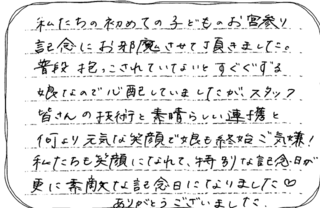 私たちの初めての子どものお宮参り
記念にお邪魔させて頂きました。
普段抱っこされていないとすぐぐずる
娘なので心配していましたが、スタッフ
皆さんの技術と素晴らしい連携と
何より元気な笑顔で娘も終始ご気嫌!
私たちも笑顔になれて、特別な記念日が
更に素敵な記念日になりました♡
ありがとうございました